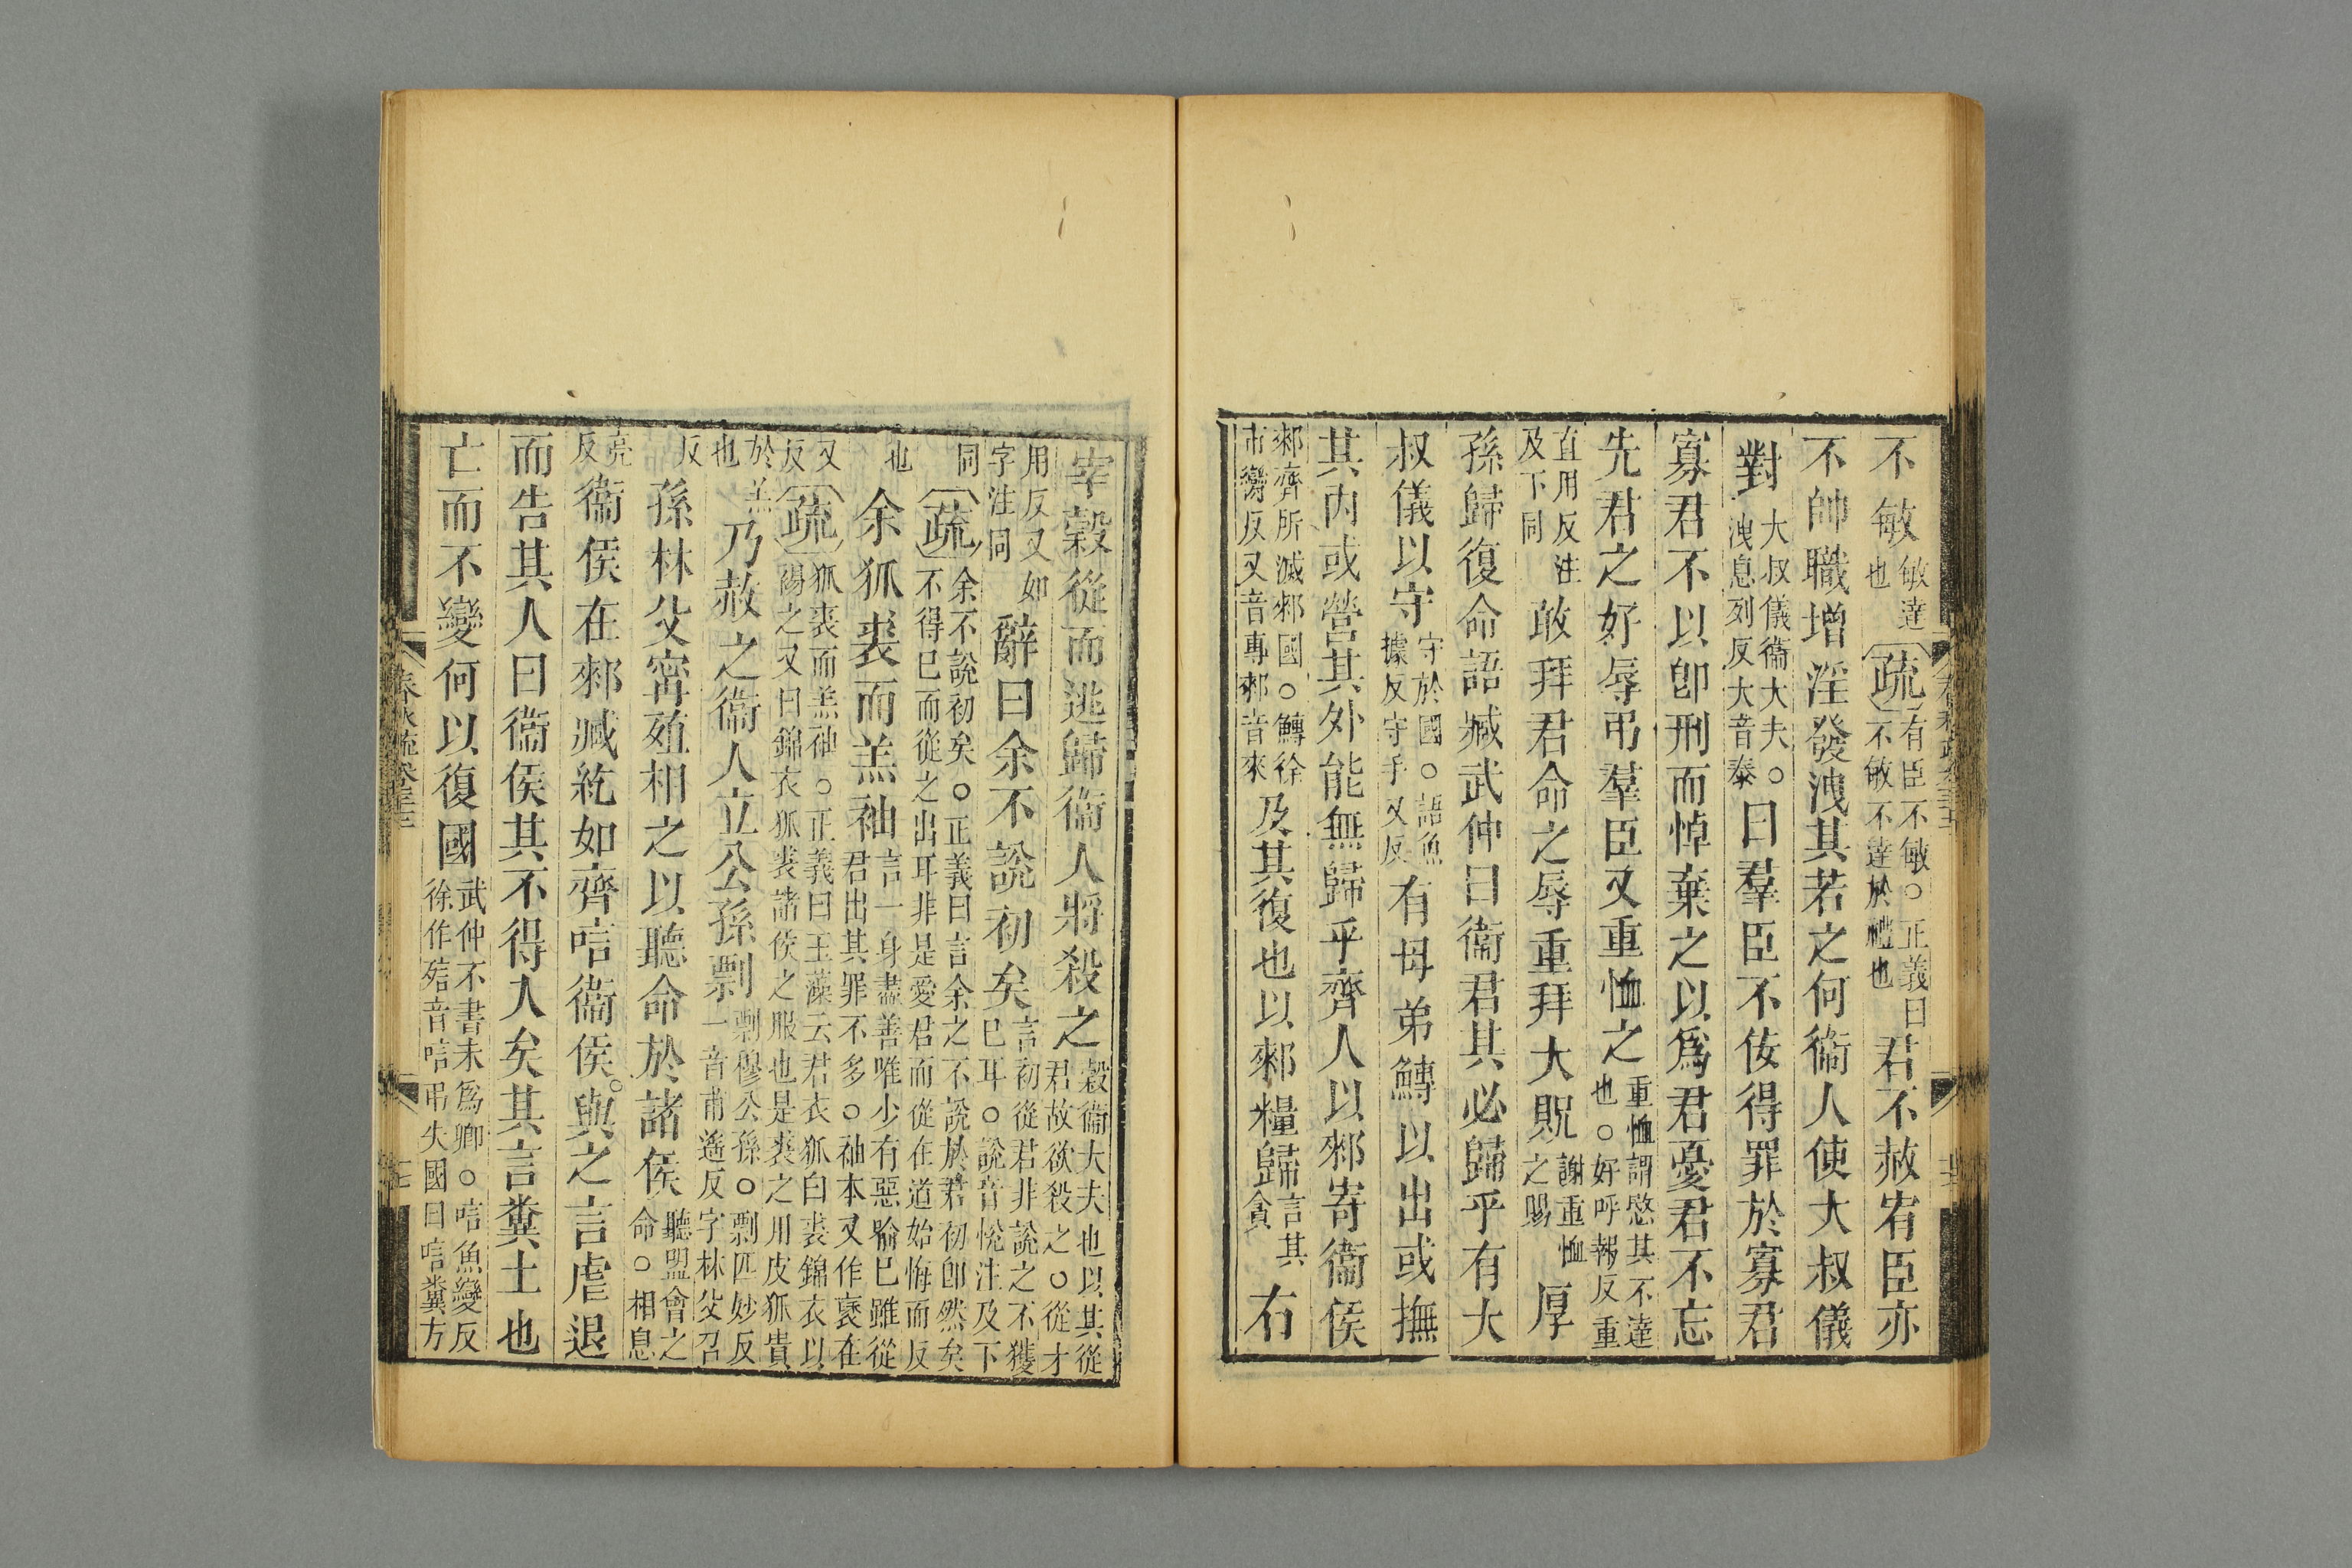 不敏敏達也疏有臣不敏○正義曰不敏不達於禮也君不赦宥臣亦
不帥職增淫發洩其若之何衞人使大叔儀
對大叔儀衞大夫○洩息列反大音泰曰羣臣不佞得罪於寡君
寡君不以卽刑而悼棄之以爲君憂君不忘
先君之好辱弔羣臣又重恤之重恤謂愍其不達也○好呼報反重
直用反注及下同敢拜君命之辱重拜大貺謝重恤之賜厚
孫歸復命語臧武仲曰衞君其必歸乎有大
叔儀以守守於國○語魚據反守手又反有母弟鱄以出或撫
其內或營其外能無歸乎齊人以郲寄衞侯
郲齊所滅郲國○鱄徐市臠反又音專郲音來及其復也以郲糧歸言其貪右
宰穀從而逃歸衞人將殺之穀衞大夫也以其從君故欲殺之○從才
用反又如字注同辭曰余不說初矣言初從君非說之不獲已耳○說音悅注及下
同疏余不說初矣○正義曰言余之不說於君初卽然矣不得已而從之出耳非是愛君而從在道始悔而反
也余狐裘而羔袖言一身盡善唯少有惡喻已雖從君出其罪不多○袖本又作褎在
又反疏狐裘而羔袖○正義曰玉藻云君衣狐白裘錦衣以裼之又曰錦衣狐裘諸侯之服也是裘之用皮狐貴
於羔也乃赦之衞人立公孫剽剽穆公孫○剽匹妙反一音甫遙反字林父召
反孫林父甯殖相之以聽命於諸侯聽盟會之命○相息
亮反衞侯在郲臧紇如齊唁衞侯○與之言虐退
而告其人曰衞侯其不得入矣其言糞土也
亡而不變何以復國武仲不書未爲卿○唁魚變反徐作殆音唁弔失國曰唁糞方
春秋疏卷三十二
十七